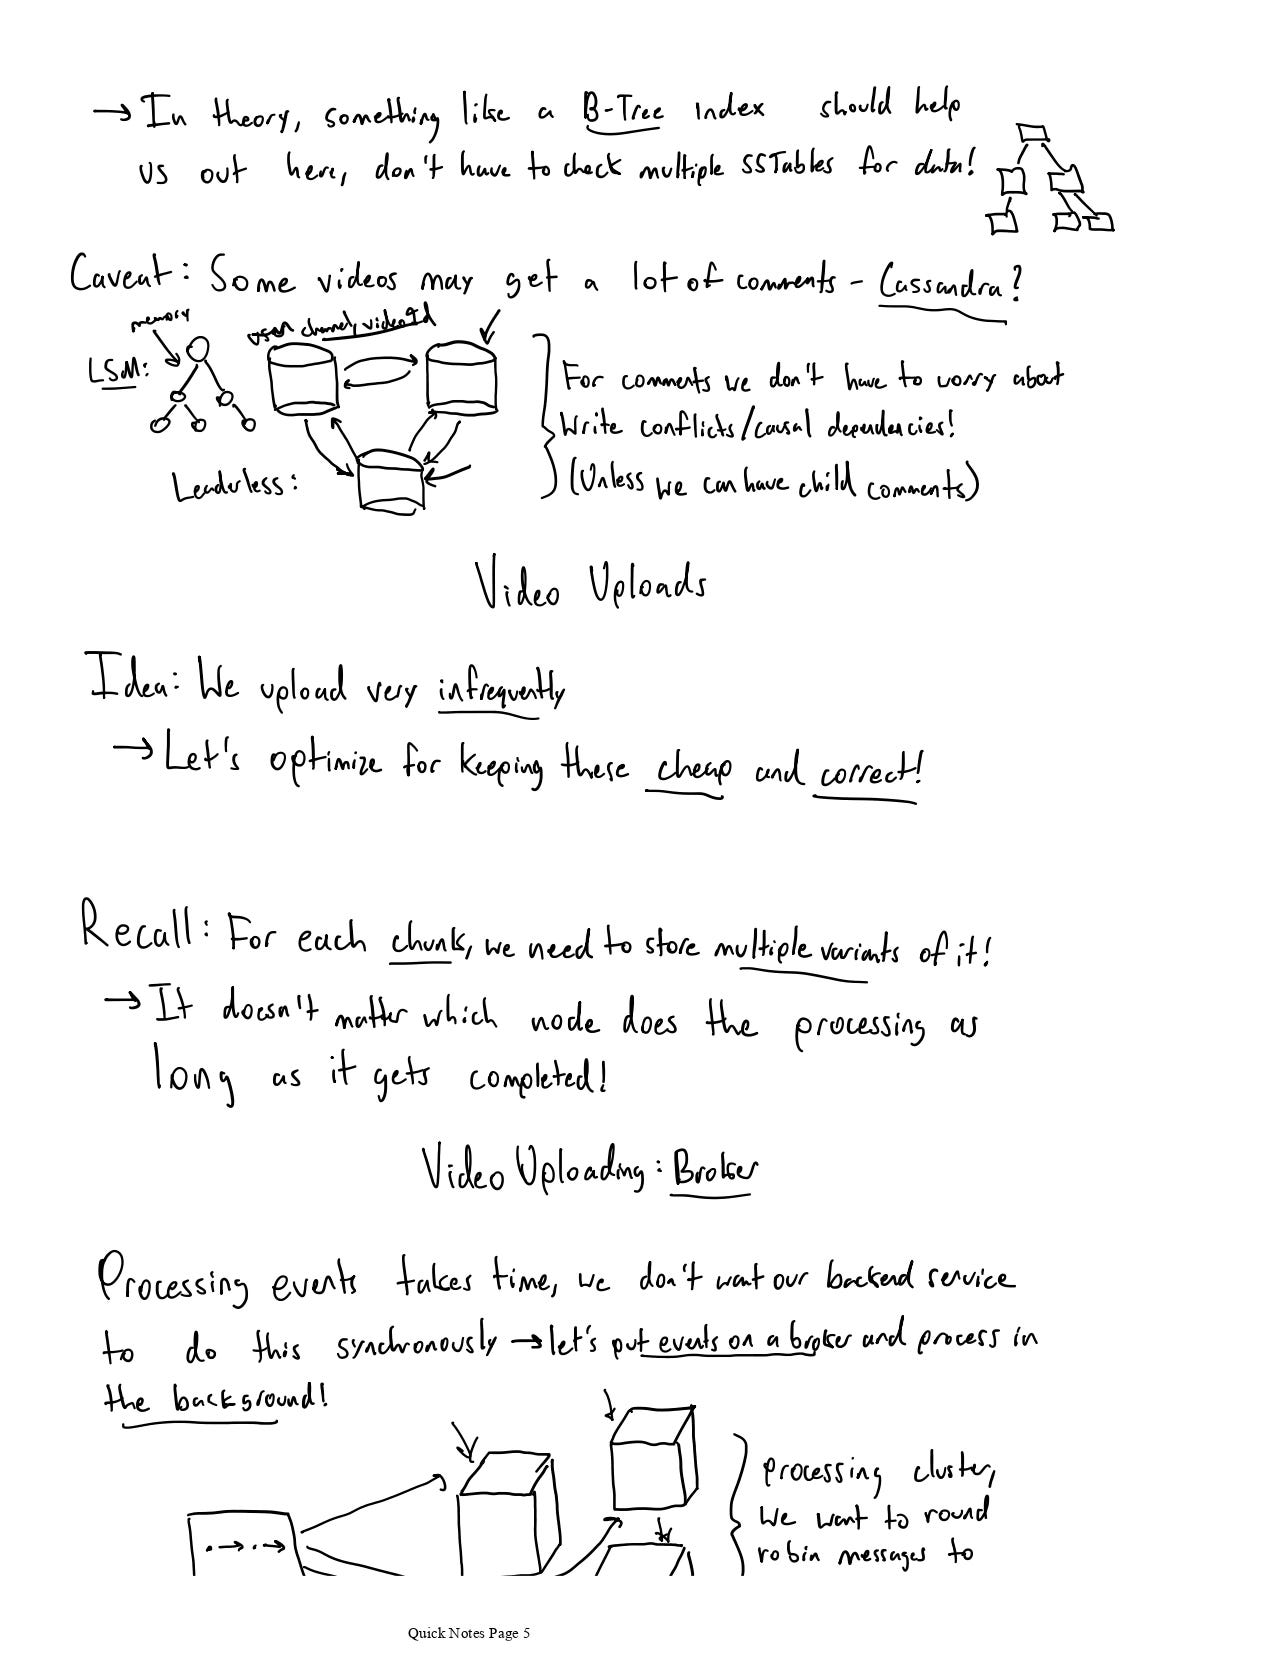 → In theory, something like a B-Tree index should help
us out here, don't have to check multiple SSTables for data!
Caveat: Some videos may get a lot of comments - Cassandra?
memory
channel, videoId
LSM:
For comments we don't have to worry about
Write conflicts/causal dependencies!
Leaderless:
(Unless we can have child comments)
Video Uploads
Idea: We upload very infrequently
→ Let's optimize for keeping these cheap and correct!
Recall: For each chunk, we need to store multiple variants of it!
→ It doesn't matter which node does the processing as
long as it gets completed!
Video Uploading: Broker
Processing events takes time, we don't want our backend service
to do this synchronously → let's put events on a broker and process in
the background!
processing cluster,
We want to round
robin messages to
Quick Notes Page 5